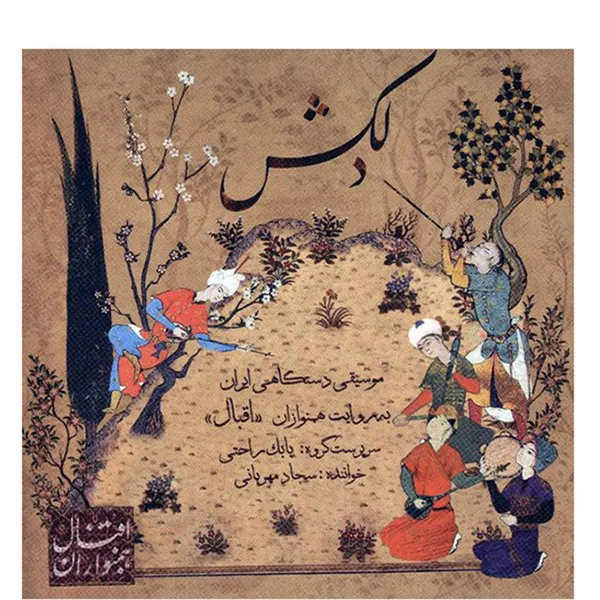 دلکش
موسیقی دستگاهی ایران
به روایت همنوازان «اقبال»
سرپرست گروه: بابک راحتی
خواننده: سجاد مهربانی
اقبال
همنوازان